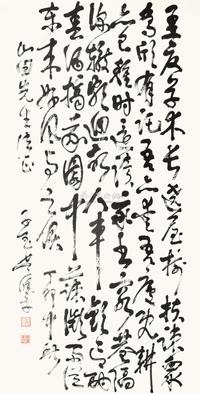 孟夏草木長繞屋樹扶疎眾
鳥欣有託吾亦愛吾廬既耕
亦已種時還讀我書窮巷隔
深轍頗迴故人車歡言酌
春酒摘我園中蔬微雨從
東來好風與之俱丁卯中秋
先生法正